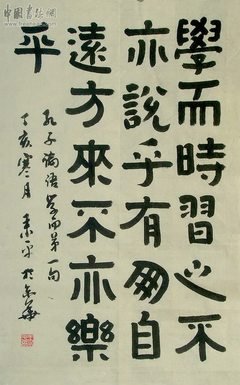 學而時習之不
亦說乎有朋自
遠方來不亦樂
乎
孔子論語學而第一句
丁亥寒月